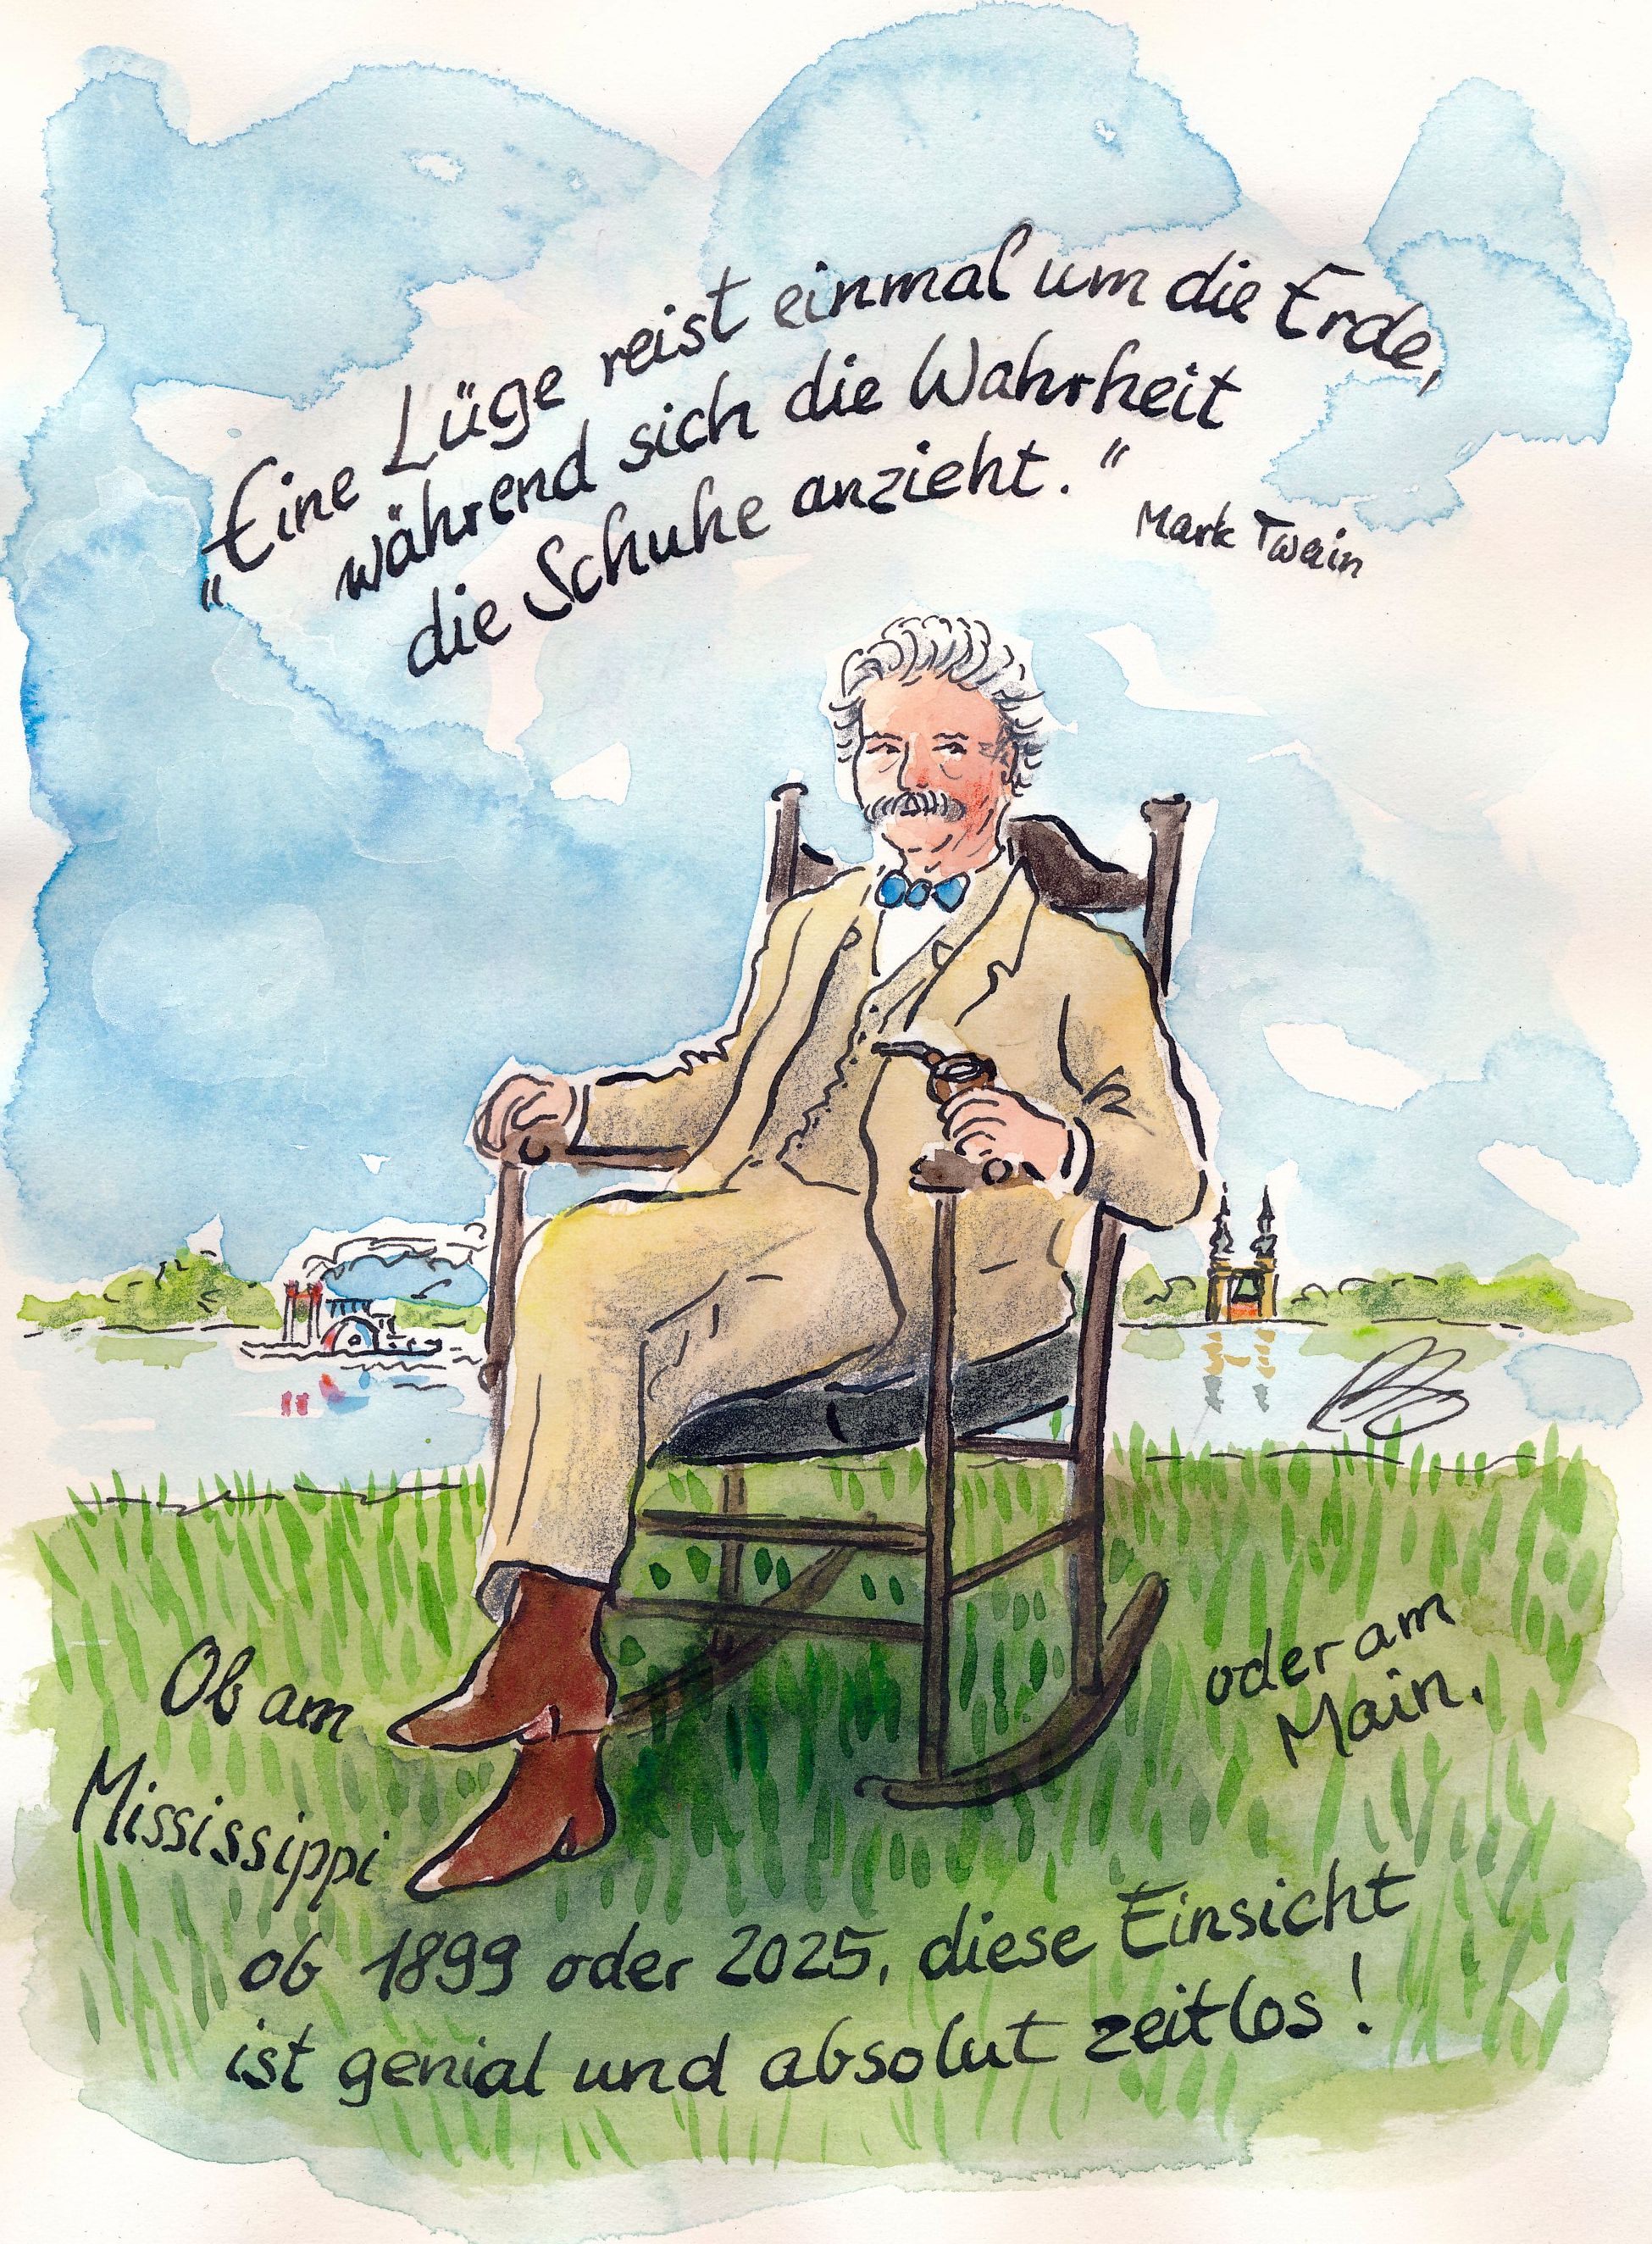 „Eine Lüge reist einmal um die Erde,
während sich die Wahrheit
die Schuhe anzieht."
Mark Twain
Ob am
Mississippi
oder am
Main.
ob 1899 oder 2025, diese Einsicht
ist genial und absolut zeitlos!